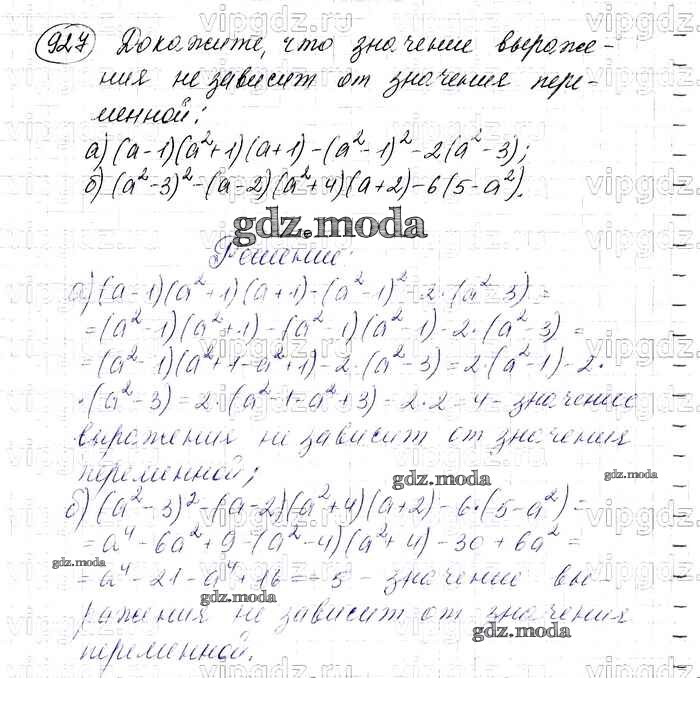 927 Докажите, что значение выраже-
ния не зависит от значения пере-
менной:
а) (a-1)(a²+1)(a+1)-(a²-1)²-2(a²-3);
б) (a²-3)²-(a-2)(a²+4)(a+2)-6(5-a²).
gdz.moda
Решение:
а) (a-1)(a²+1)(a+1)-(a²-1)²-2·(a²-3)=
=(a²-1)(a²+1)-(a²-1)(a²-1)-2·(a²-3)=
=(a²-1)(a²+1-a²+1)-2·(a²-3)=2·(a²-1)-2·
·(a²-3)=2·(a²-1-a²+3)=2·2=4- значение
выражения не зависит от значения
переменной;
gdz.moda
gdz.moda
б) (a²-3)²-(a-2)(a²+4)(a+2)-6·(5-a²)=
=a⁴-6a²+9-(a²-4)(a²+4)-30+6a²=
gdz.moda
=a⁴-21-a⁴+16=-5 - значение вы-
gdz.moda
ражения не зависит от значения
gdz.moda
переменной.